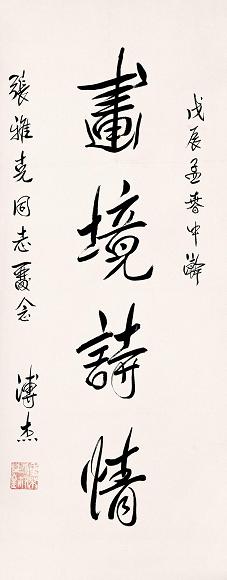 戊辰孟春中澣
畫境詩情
張雅克同志畱念
溥杰